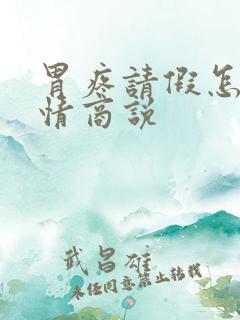 胃疼請假怎
情商説
武昌雄
未经同意禁止转载